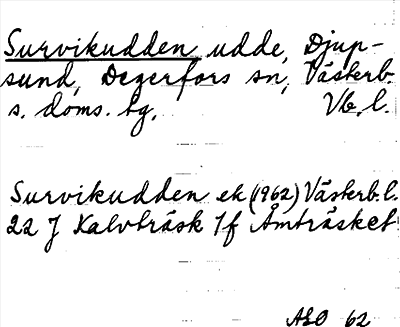 Survikudden, udde, Djup-
sund, Degerfors sn, Västerb.
s. doms. tg, Vb. l.
Survikudden ek (1962) Västerb. l.
22 J Kalvträsk 7f Åmträsket
ALO 62